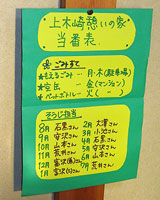 上木崎憩いの家
当番表
ごみすて
もえるごみ…月・木(駐車場)
空缶…金(マンション)
ペットボトル…火(〃)
そうじ担当
8月 石黒さん
9月 安沢さん
10月 山本さん
11月 荒井さん
12月 富沢
1月 富沢
2月 大澤さん
3月 小池さん
4月 石黒さん
5月 安沢さん
6月 山本さん
7月 荒井さん